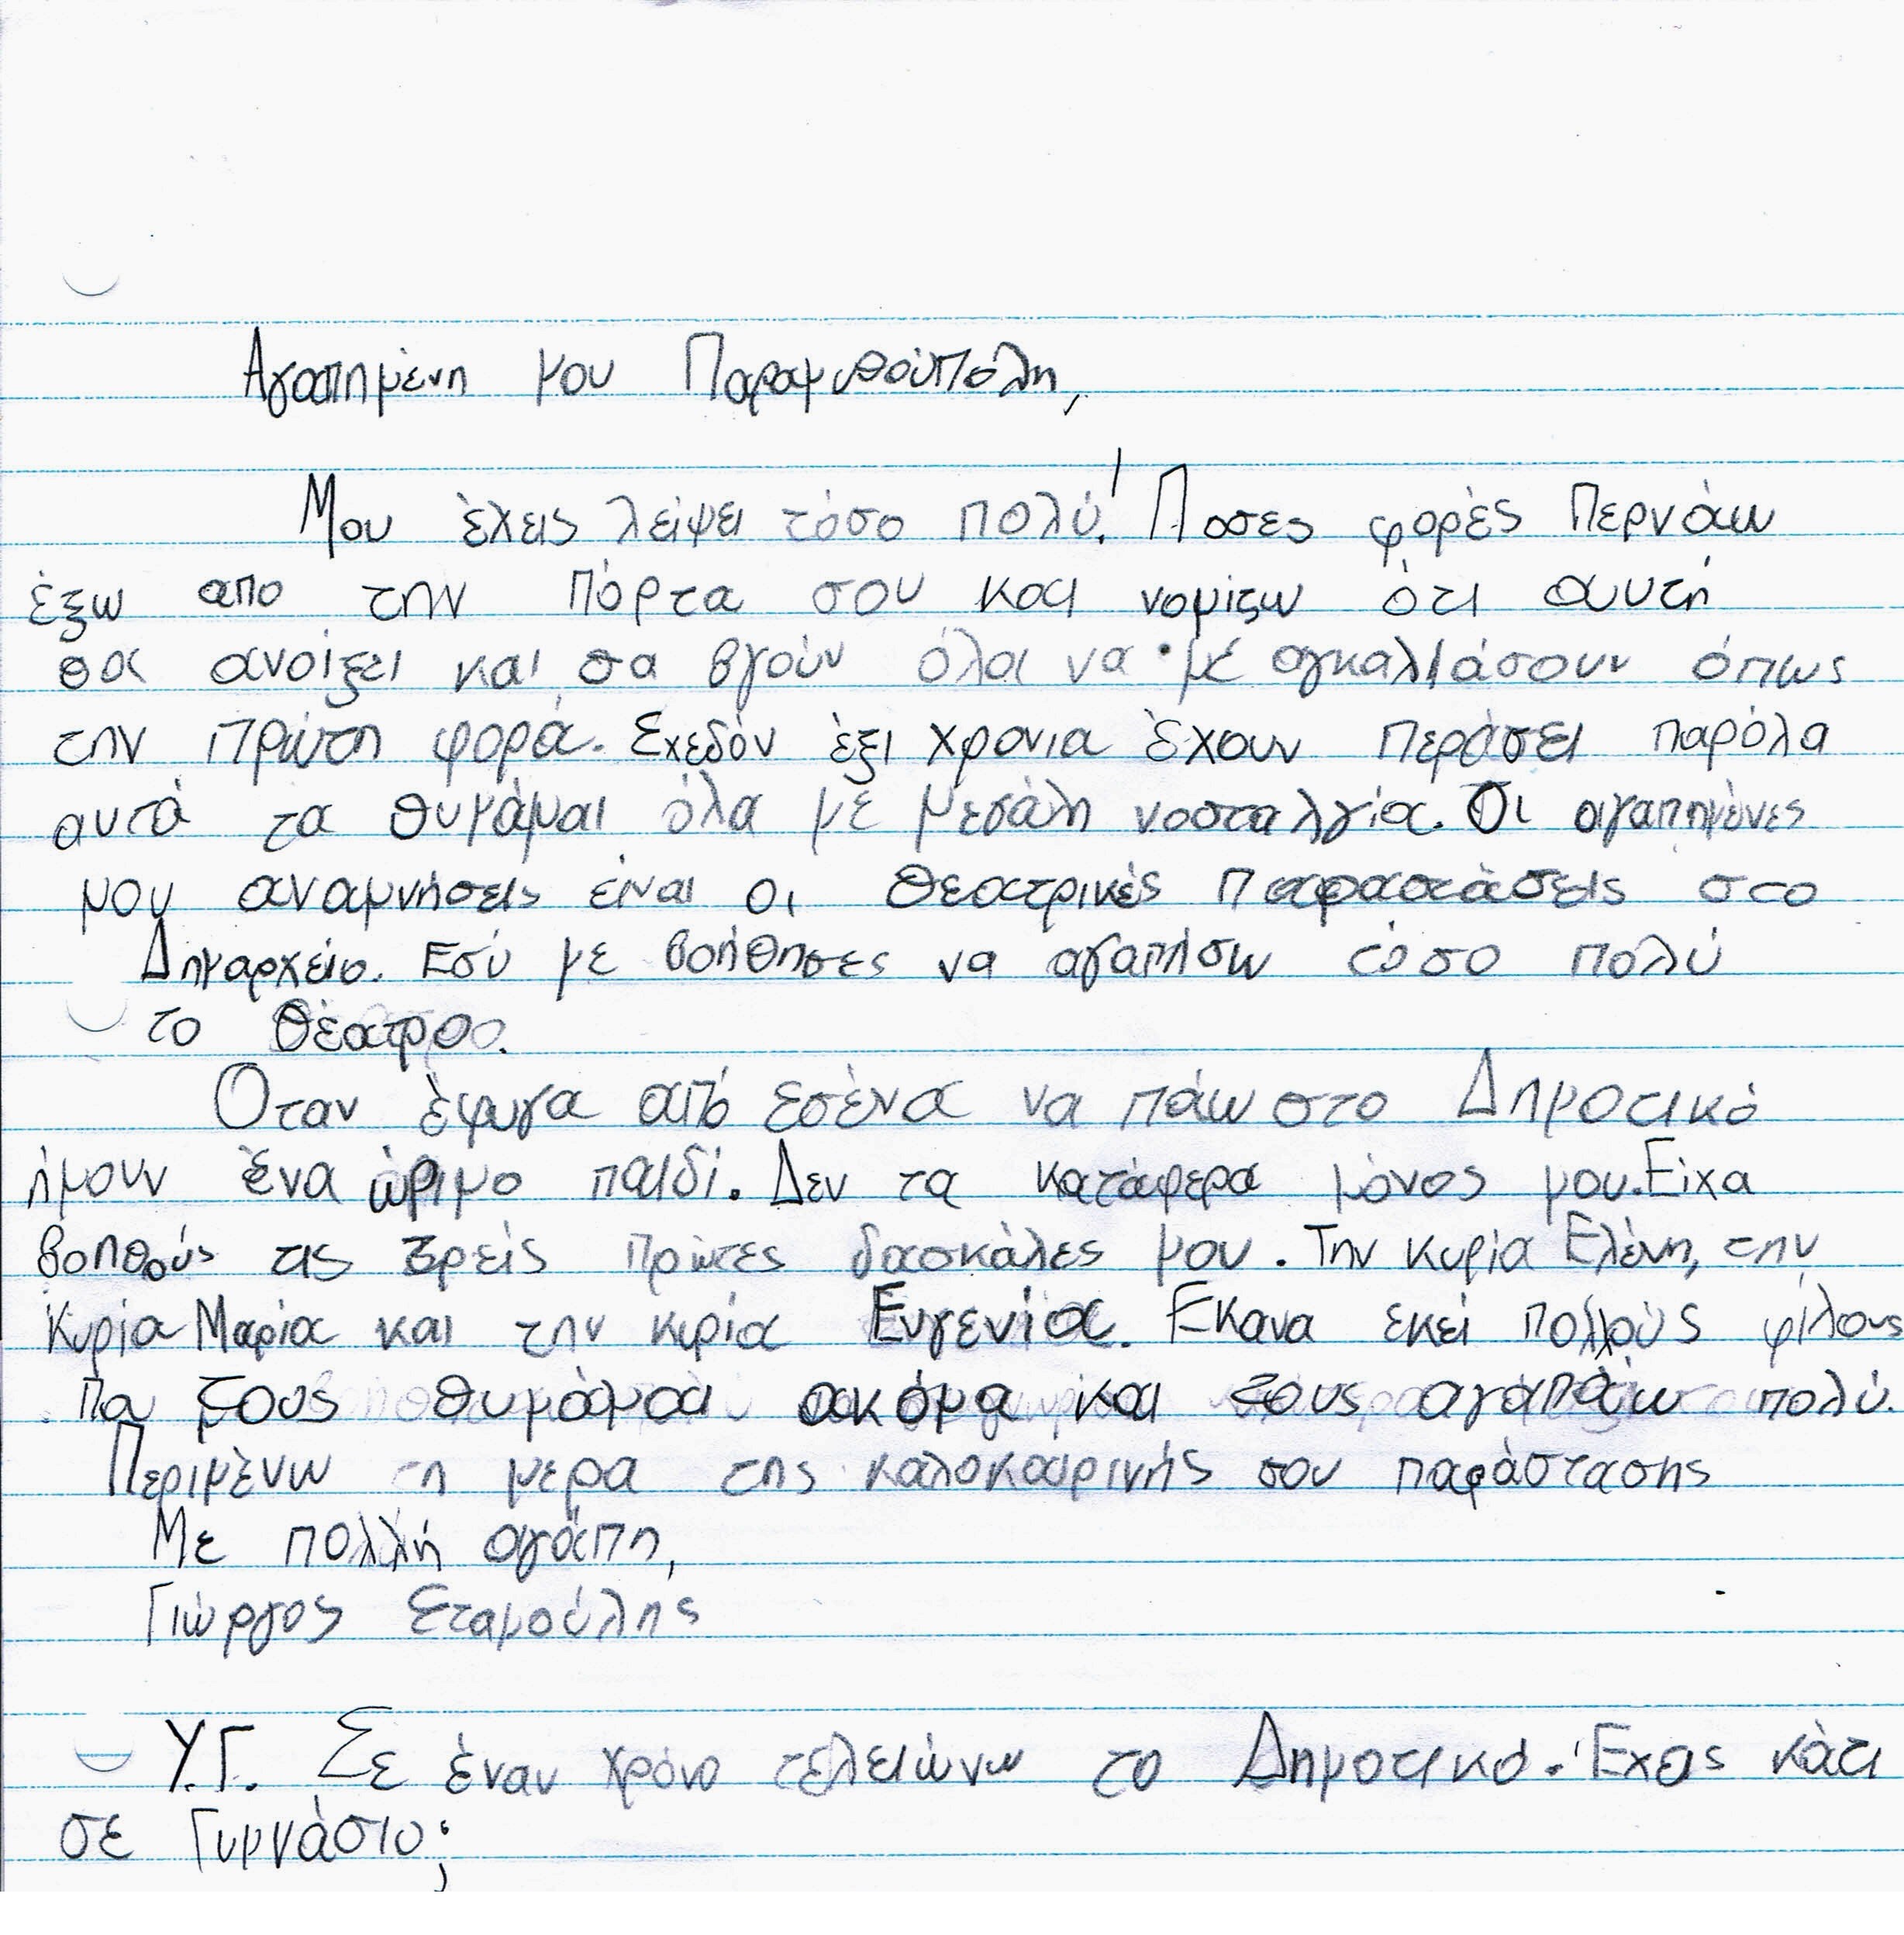 Αγαπημένη μου Παραμυθούπολη,
Μου έχεις λείψει τόσο πολύ! Ποσες φορές περνάω
έξω απο την πόρτα σου και νομίζω ότι αυτή
θα ανοίξει και θα βγούν όλοι να με αγκαλιάσουν όπως
την πρώτη φορά. Σχεδόν έξι χρονια έχουν περάσει παρόλα
αυτά τα θυμάμαι όλα με μεγάλη νοσταλγία. Οι αγαπημένες
μου αναμνήσεις είναι οι θεατρικές παραστάσεις στο
Δημαρχείο. Εσύ με βοήθησες να αγαπήσω τόσο πολύ
το θέατρο.
Οταν έφυγα από εσένα να πάω στο Δημοτικό
ήμουν ένα ώριμο παιδί. Δεν τα κατάφερα μόνος μου. Είχα
βοηθούς τις τρείς πρώτες δασκάλες μου. Την κυρία Ελένη, την
Κυρία Μαρία και την κιρία Ευγενία. Εκανα εκεί πολλούς φίλους
τους θυμάμαι ακόμα και τους αγαπάω πολύ.
Περιμένω τη μερα της καλοκαιρινής σου παράστασης
Με πολλή αγάπη,
Γιώργος Σταμούλης
Υ.Γ. Σε έναν χρόνο τελειώνω το Δημοτικό. Έχεις κάτι
σε Γυμνάσιο;